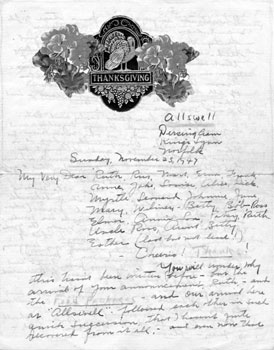 THANKSGIVING
Allswell
Dersingham
Kings Lynn
Norfolk
Sunday, November 23, 1947
My very dear Ruth, Russ, Mart, Erma, Frank,
Anne, John, Louise, Jack,
Myrtle, Leonard, Johnnie, June
Mary, Betty, Bob, Ross
Elmer, Annie, Ruth
Uncle Ross, Aunt Sissy
Esther (last but not least!)
Cheers! Thanks!
You will wonder why
this hasn't been written before - but the
arrival of your announcement, Ruth - and
the Food Packages - and our arrival here
at 'Allswell' - followed each other in such
quick succession, that I haven't quite
recovered from it all - and even now those